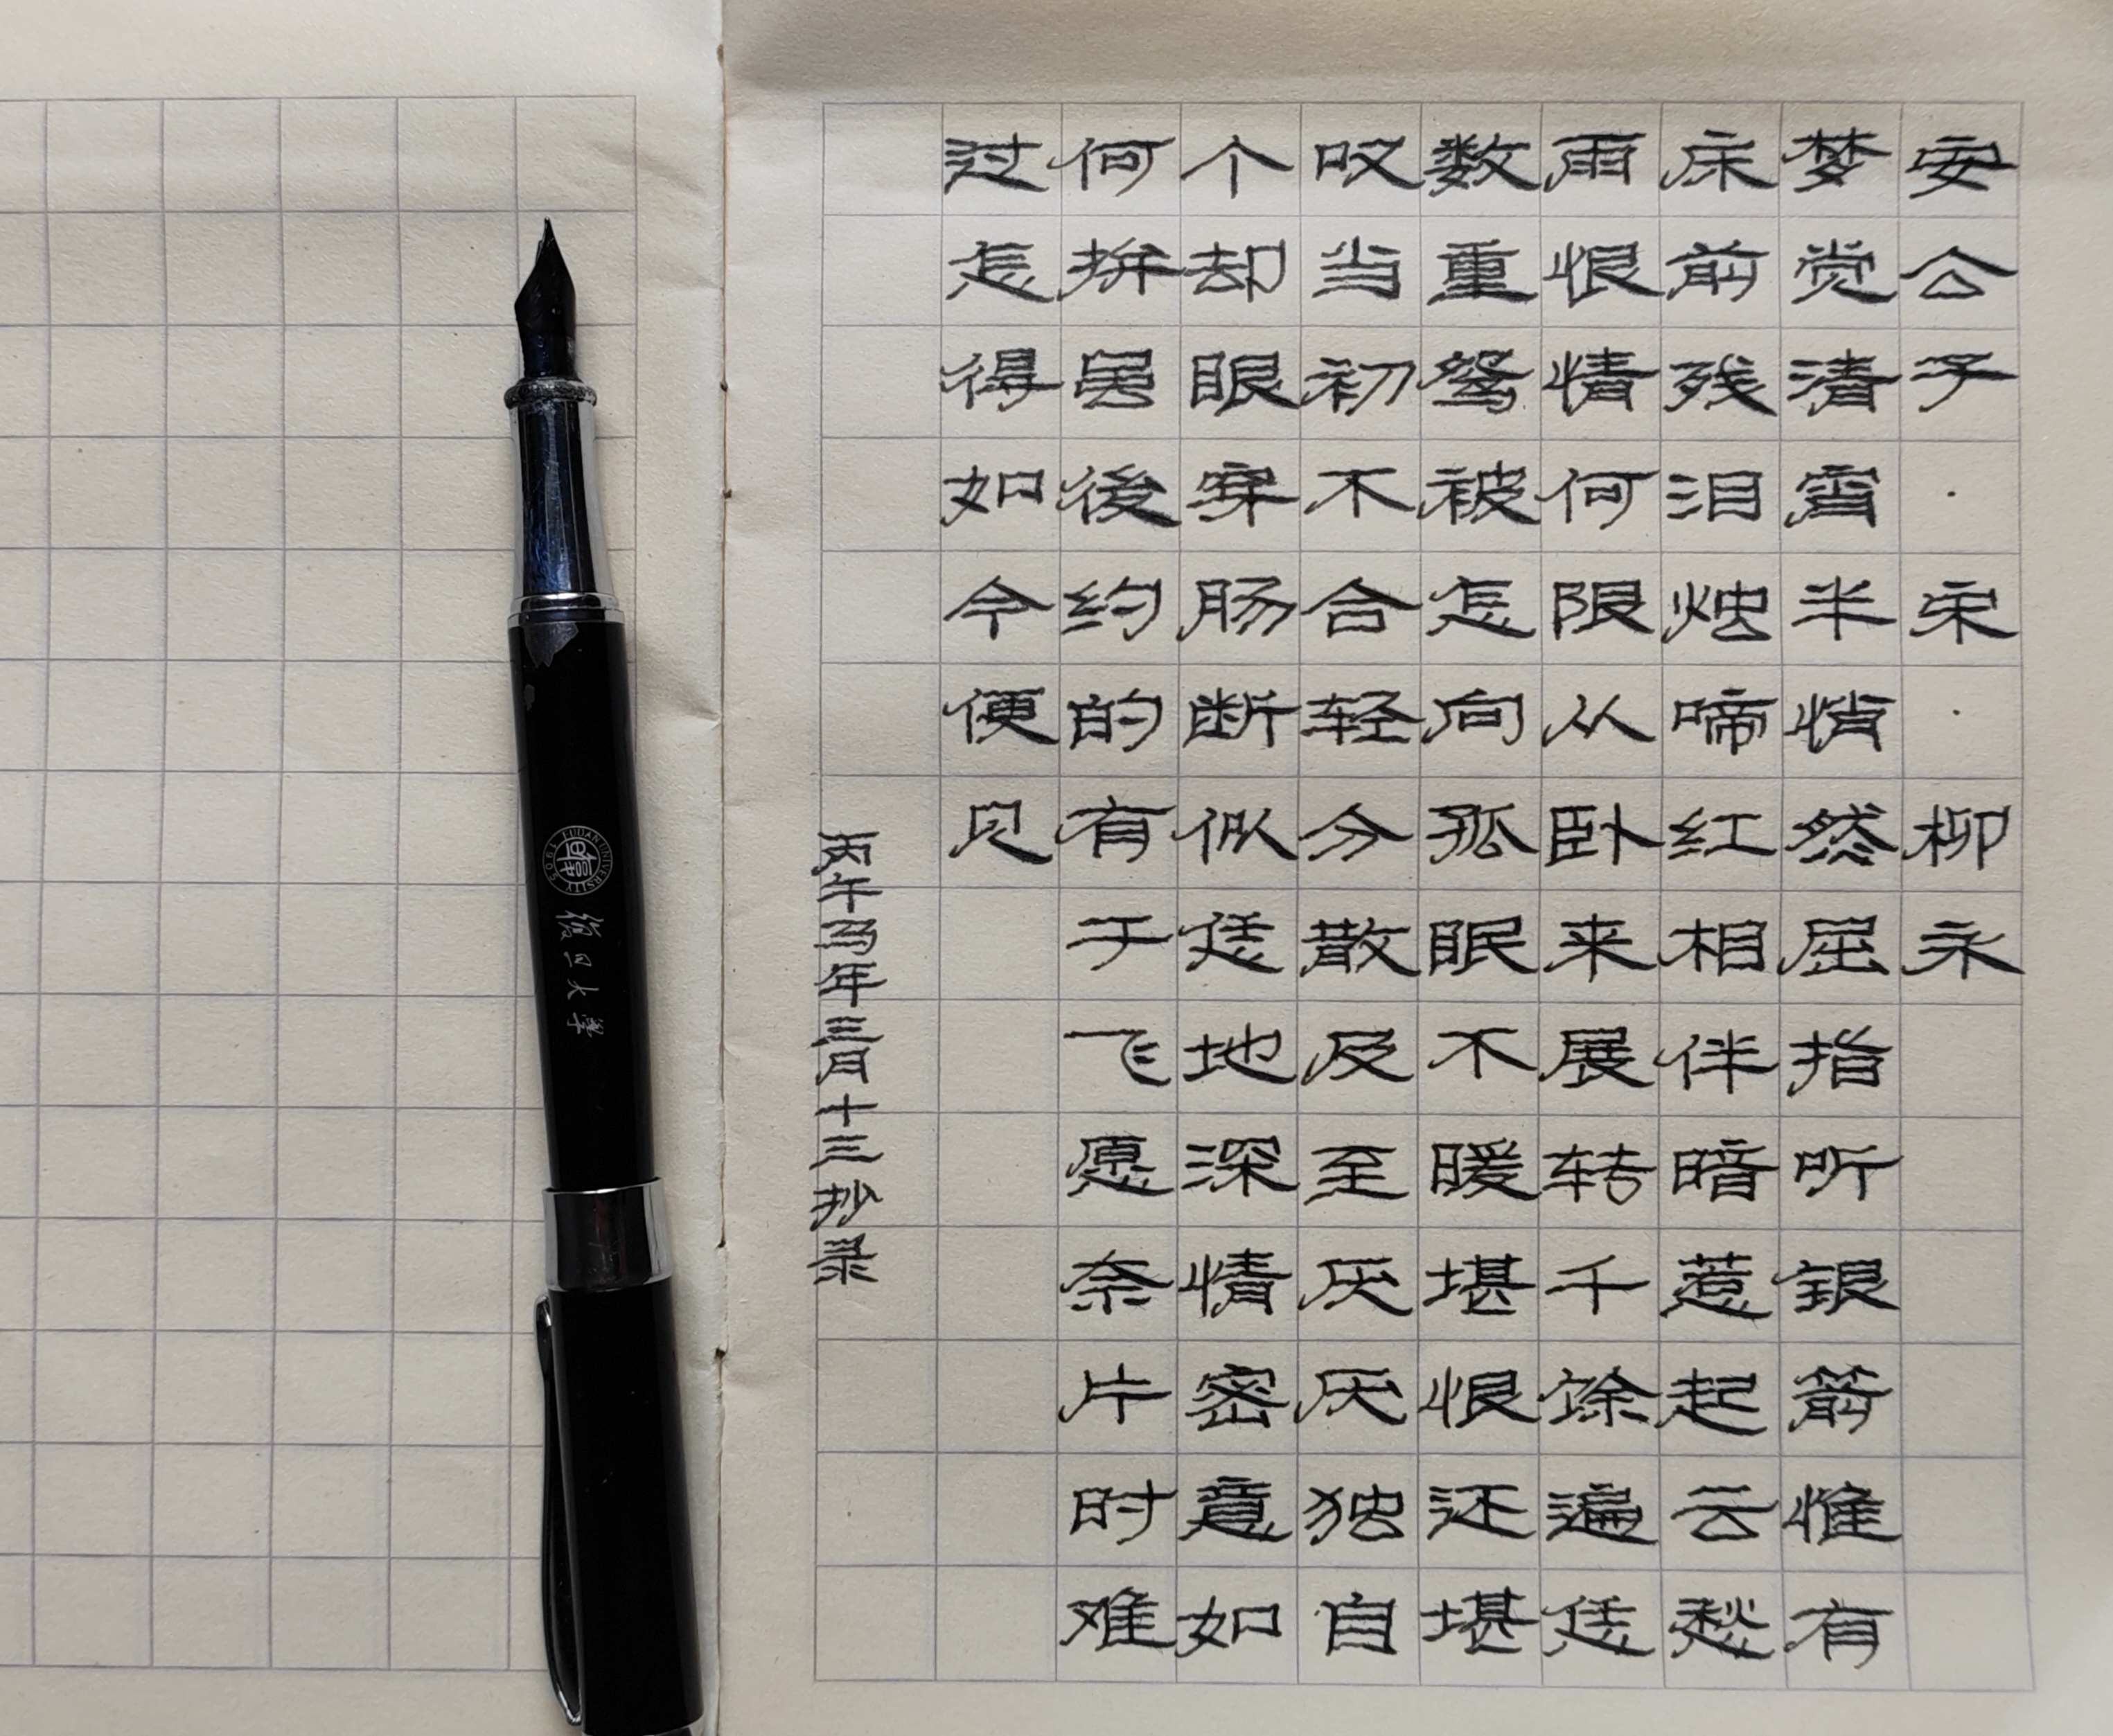 安公子·宋·柳永
梦觉清宵半悄然屈指听银箭惟有
床前残泪烛啼红相伴暗惹起云愁
雨恨情何限从卧来展转千馀遍恁
数重鸳被怎向孤眠不暖堪恨还堪
叹当初不合轻分散及至厌厌独自
个却眼穿肠断似恁地深情密意如
何拚虽後约的有于飞愿奈片时难
过怎得如今便见
丙午马年三月十三抄录
FUDAN UNIVERSITY
1905
復旦大學